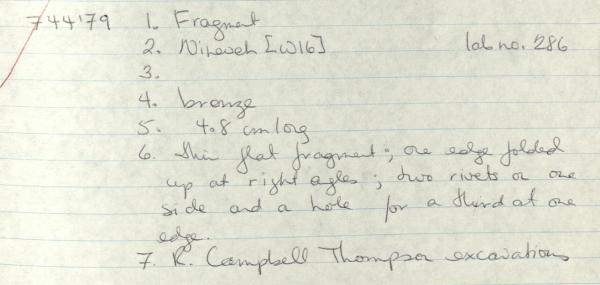 744'79 1. Fragment
2. Nineveh [W16] lab no. 286
3.
4. bronze
5. 4.8 cm long
6. thin flat fragment; one edge folded
up at right agles; two rivets on one
side and a hole for a third at one
edge.
7. R. Campbell Thompson excavations